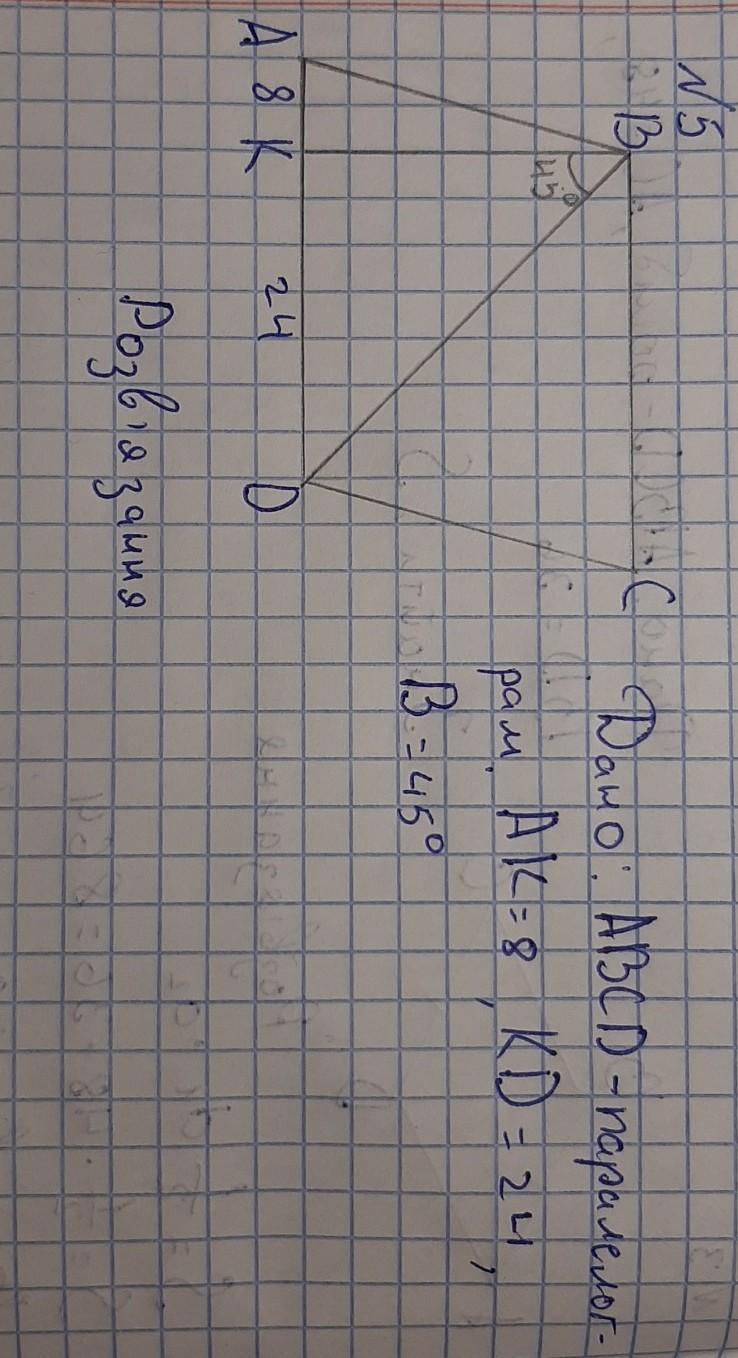 №5
B
C
45°
A 8 K 24 D
Дано: ABCD - паралелог-
рам. AK = 8, KD = 24,
B = 45°
Розв'язання